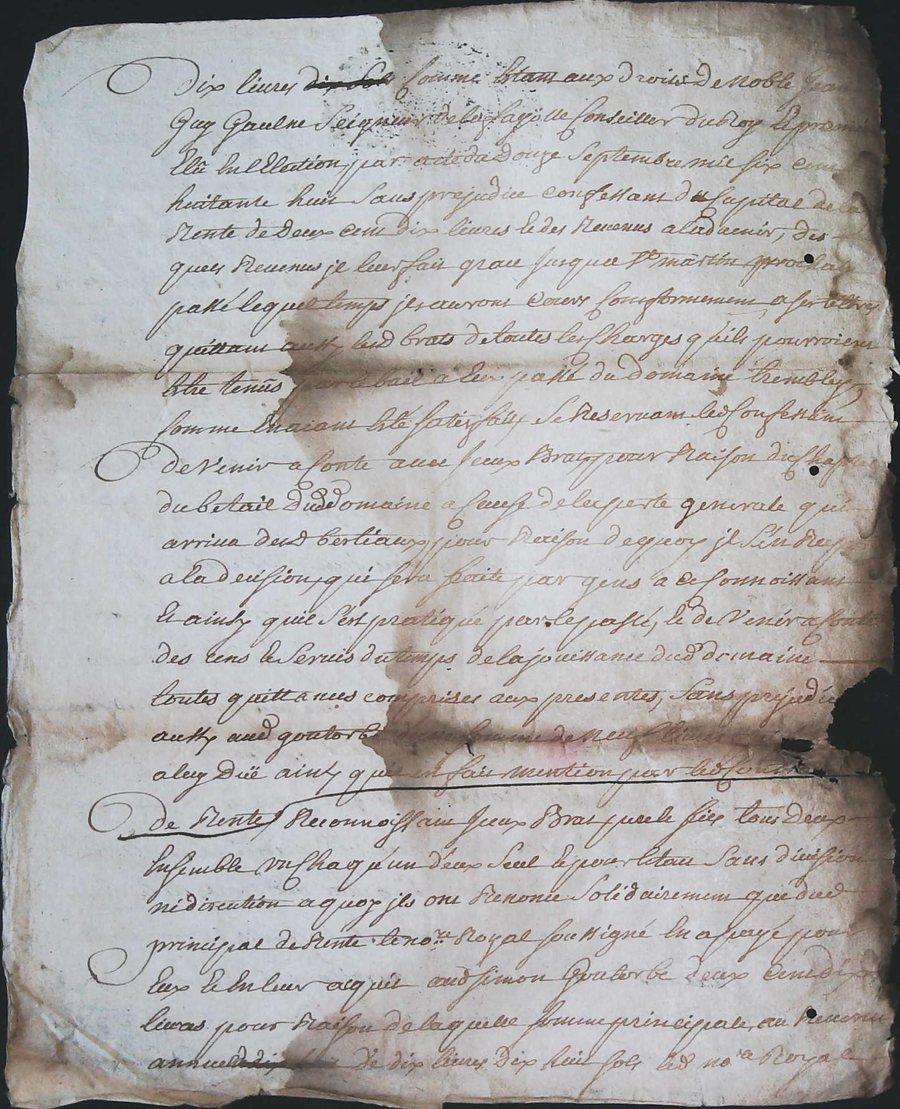 Dix livres dix sols comme étant aux droits de Noble Jean
Guy Gaulne Seigneur de la Conseiller du Roy Le premier
Elû En l'Election, par acte du Douze Septembre mil six cent
huitante huit Sans prejudice confessant du Capital de la
Rente de deux cent dix livres et des Revenus a ladvenir, des
quels Revenus je leur fait grace jusqua St martin prochain
passé lequel temps ils auront cours Conformement a
quittant aussy lesd brats de toutes les Charges qu'ils pourroient
Etre tenus par le bail a Eux passé du Domaine trembley
comme Enaiant Eté satisfait, Se Reservant led Confessant
De Venir a Conte avec Jceux Brat pour Raison du Cheptel
du betail Dud Domaine a Cause de la perte generale qui
arriva desd bestiaux, pour Raison de quoy il s'En
a la decision, qui sera faite par gens a ce Connoissant
Et ainsy qu'il S'est pratiqué par le passé, Et de Venir a Conte
des cens et Servis du temps de la jouissance dud domaine
toutes quittances comprises aux presentes, Sans prejudice
aussy aud goutorbe somme de neuf livres
a luy Düe ainsy quil en fait mention par led
De Rente, Reconnoissant Jceux Brat pere et fils tous deux
Ensemble Un Chaqu'un d'eux Seul et pour le tout Sans division
ni discution a quoy ils ont Renoncé Solidairement que dud
principal de Rente le nore Royal soussigné En a payé pour
Eux et En leur acquit aud Simon Goutorbe deux Cent dix
livres pour Raison de laquelle somme principale, au Revenu
annuel de dix livres Dix huit sols led nore Royal